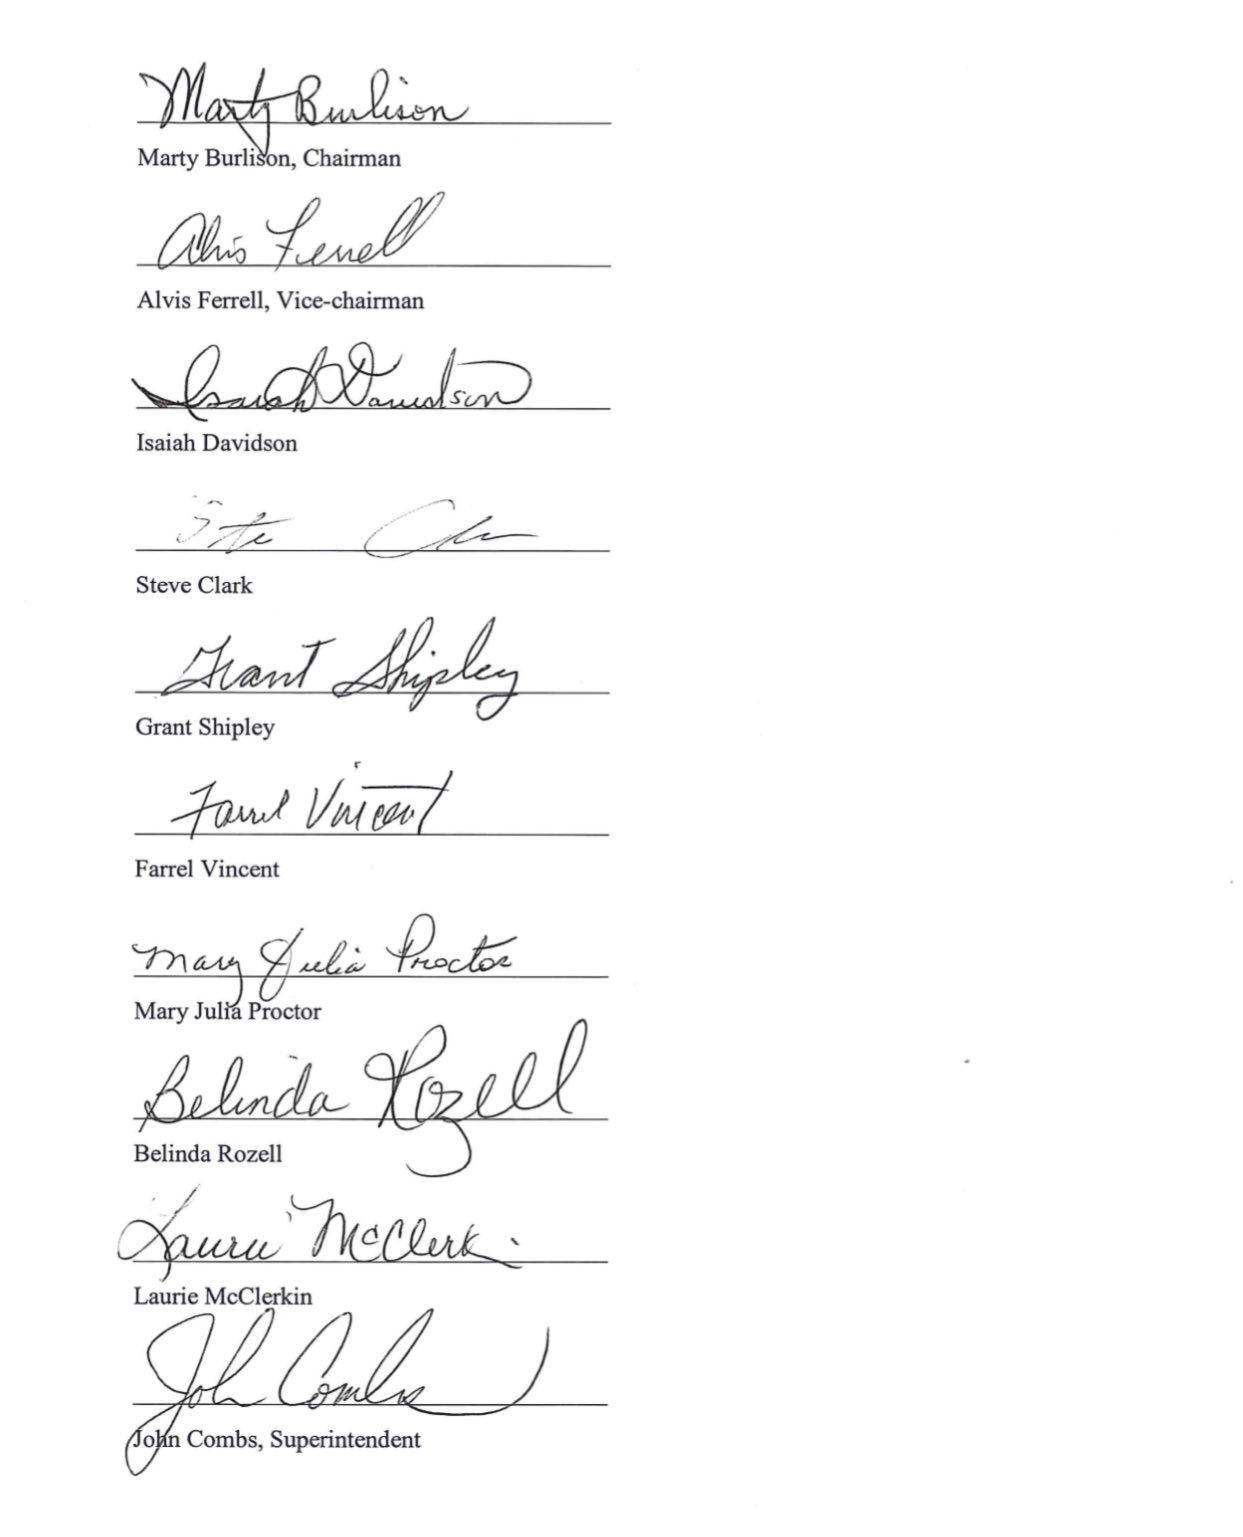 Marty Burlison
Marty Burlison, Chairman
Alvis Ferrell
Alvis Ferrell, Vice-chairman
Isaiah Davidson
Isaiah Davidson
Steve Clark
Grant Shipley
Grant Shipley
Farrel Vincent
Farrel Vincent
Mary Julia Proctor
Mary Julia Proctor
Belinda Rozell
Belinda Rozell
Laurie McClerk
Laurie McClerkin
John Combs
John Combs, Superintendent